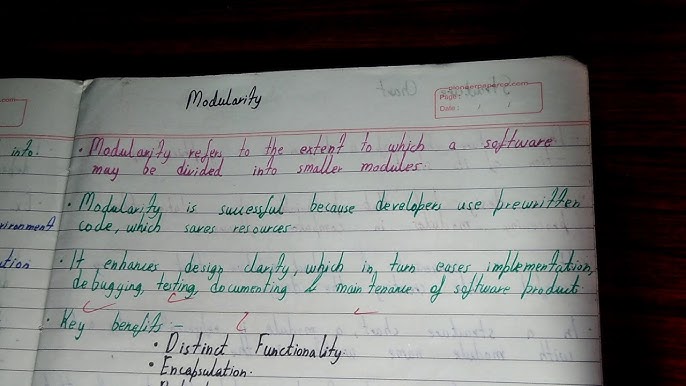 Modularity
pioneerpaperco.com
Page:
Date: / /
• Modularity refers to the extent to which a software
may be divided into smaller modules.
• Modularity is successful because developers use prewritten
code, which saves resources.
• It enhances design clarity, which in turn eases implementation,
debugging, testing, documenting & maintenance of software product
• Key benefits :-
• Distinct Functionality
• Encapsulation.
into.